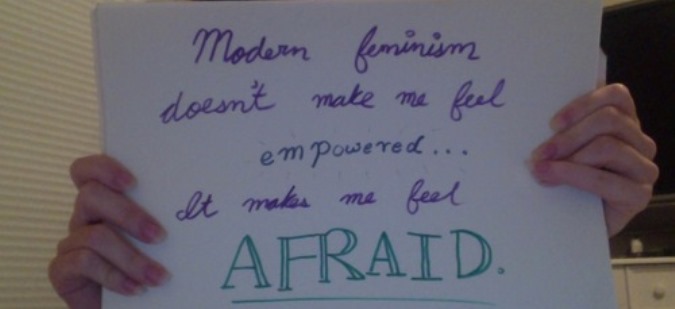 Modern feminism
doesn't make me feel
empowered...
It makes me feel
AFRAID.